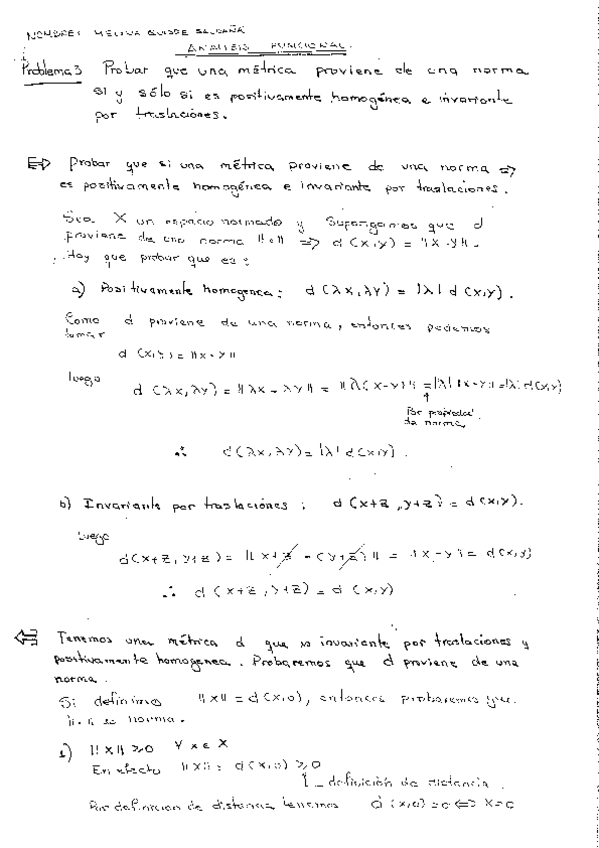 NOMBRE: MELINA QUISPE SALDAÑA
ANALISIS FUNCIONAL.
Problema 3 Probar que una métrica proviene de una norma
si y sólo si es positivamente homogénea e invariante
por traslaciones.
⇒ Probar que si una métrica proviene de una norma ⇒
es positivamente homogénea e invariante por traslaciones.
Sea X un espacio normado y Supongamos que d
proviene de una norma ||·|| ⇒ d(x,y) = ||x-y||.
Hay que probar que es:
a) Positivamente homogenea: d(λx,λy) = |λ| d(x,y).
Como d proviene de una norma, entonces podemos
tomar
d(x,y) = ||x-y||
luego
d(λx,λy) = ||λx - λy|| = ||λ(x-y)|| = |λ| ||x-y|| = |λ| d(x,y)
Por propiedad
de norma
∴ d(λx,λy) = |λ| d(x,y).
b) Invariante por traslaciones: d(x+z, y+z) = d(x,y).
Luego
d(x+z, y+z) = ||x+z - (y+z)|| = ||x-y|| = d(x,y)
∴ d(x+z, y+z) = d(x,y)
⇐ Tenemos una métrica d que es invariante por traslaciones y
positivamente homogenea. Probaremos que d proviene de una
norma.
Si definimo ||x|| = d(x,0), entonces probaremos que
||·|| es norma.
1) ||x|| ≥0 ∀ x ∈ X
En efecto ||x|| = d(x,0) ≥ 0
definición de distancia.
Por definicion de distancia tenemos d(x,0) = 0 ⇔ x=0